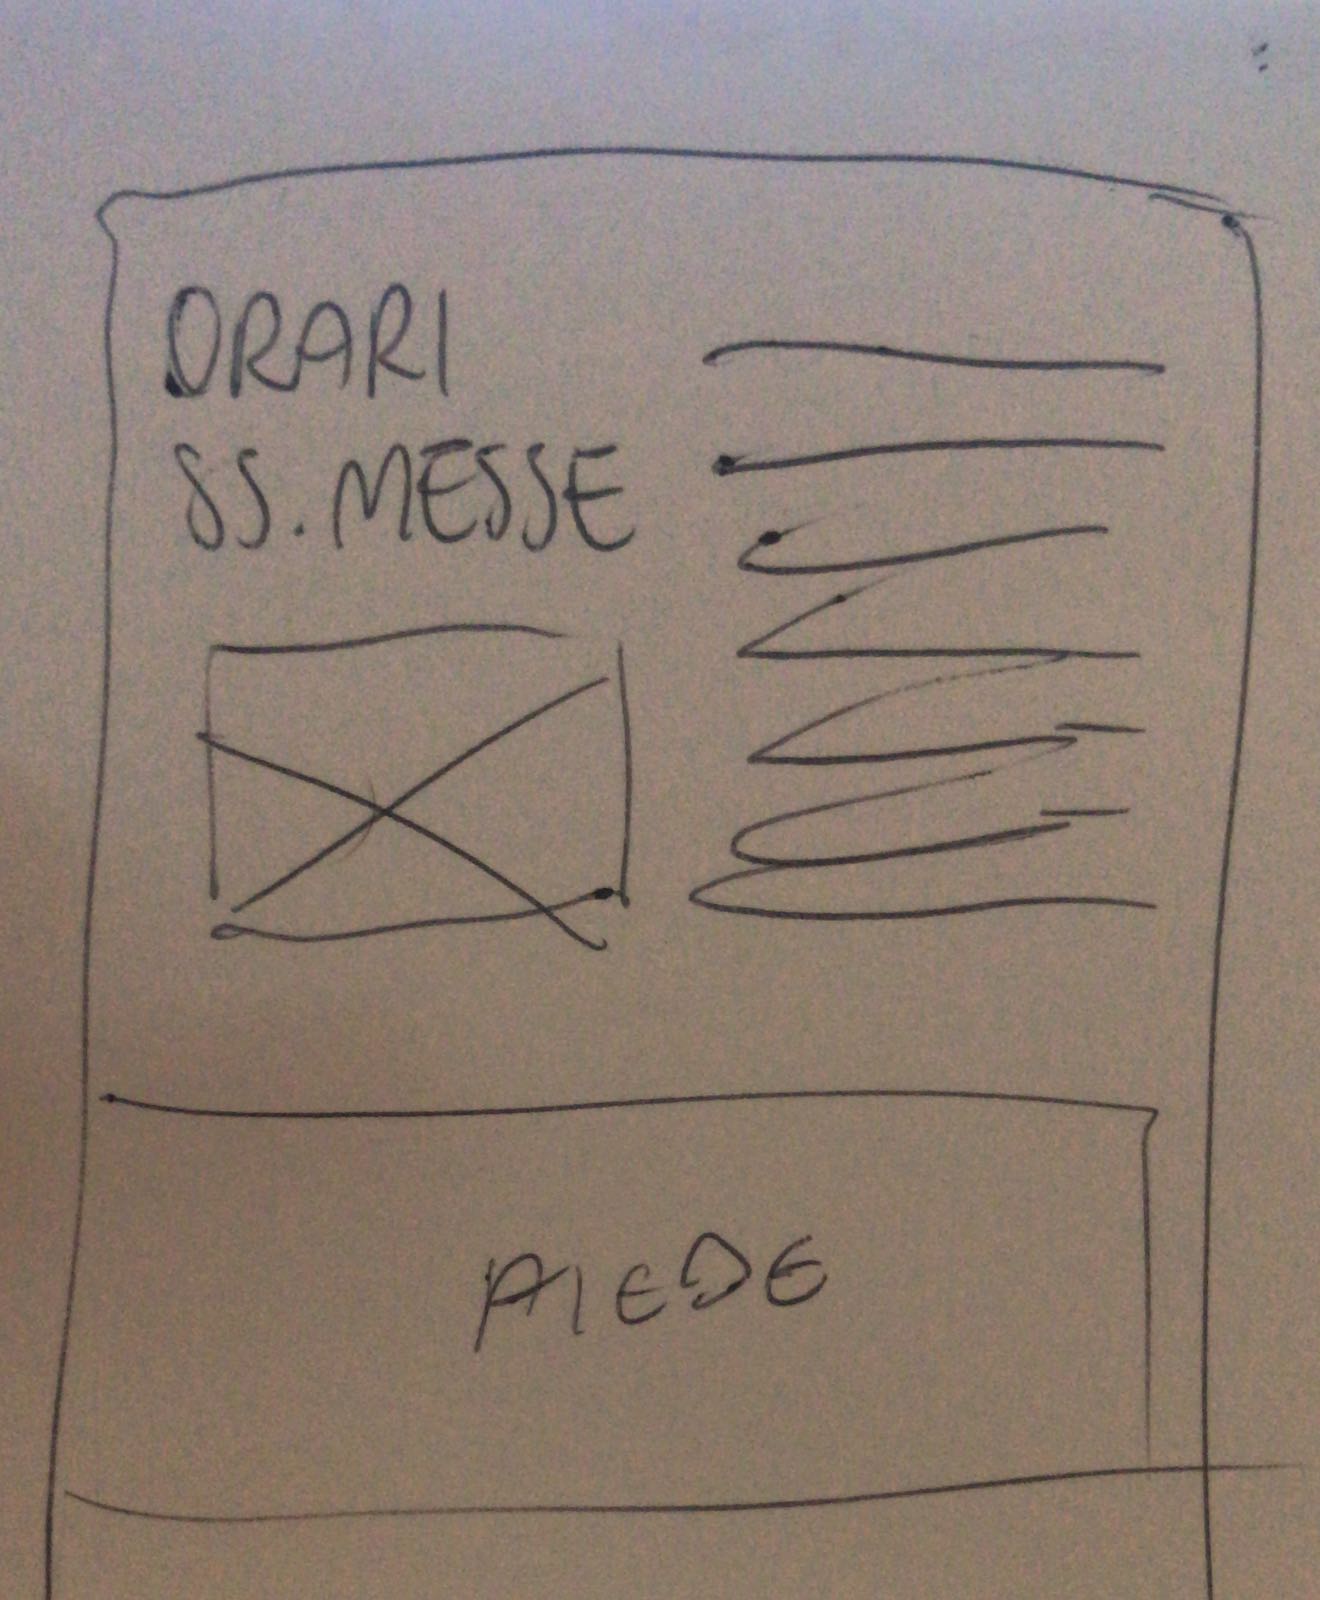 ORARI
SS. MESSE
PIEDE